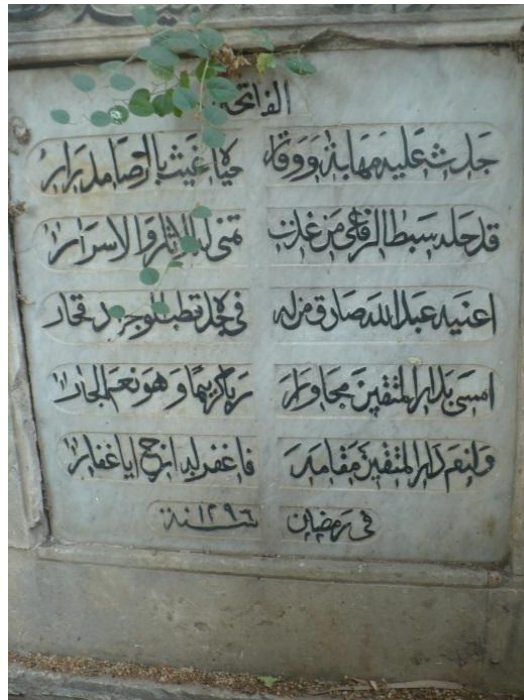 الفاتحة
جدث عليه مهابة ووقار حياه غيث بالرضا مدرار
قد حله سبط الرفاعي من غدت تمنى له الآثار والأسرار
اعنيه عبد الله صادق من له في مجد قطب الوجود فخار
امسى بدار المتقين مجاورا ربا كريما وهو نعم الجار
ولنعم دار المتقين مقامه فاغفر له ارخ ايا غفار
في رمضان سنة ١٢٩٦